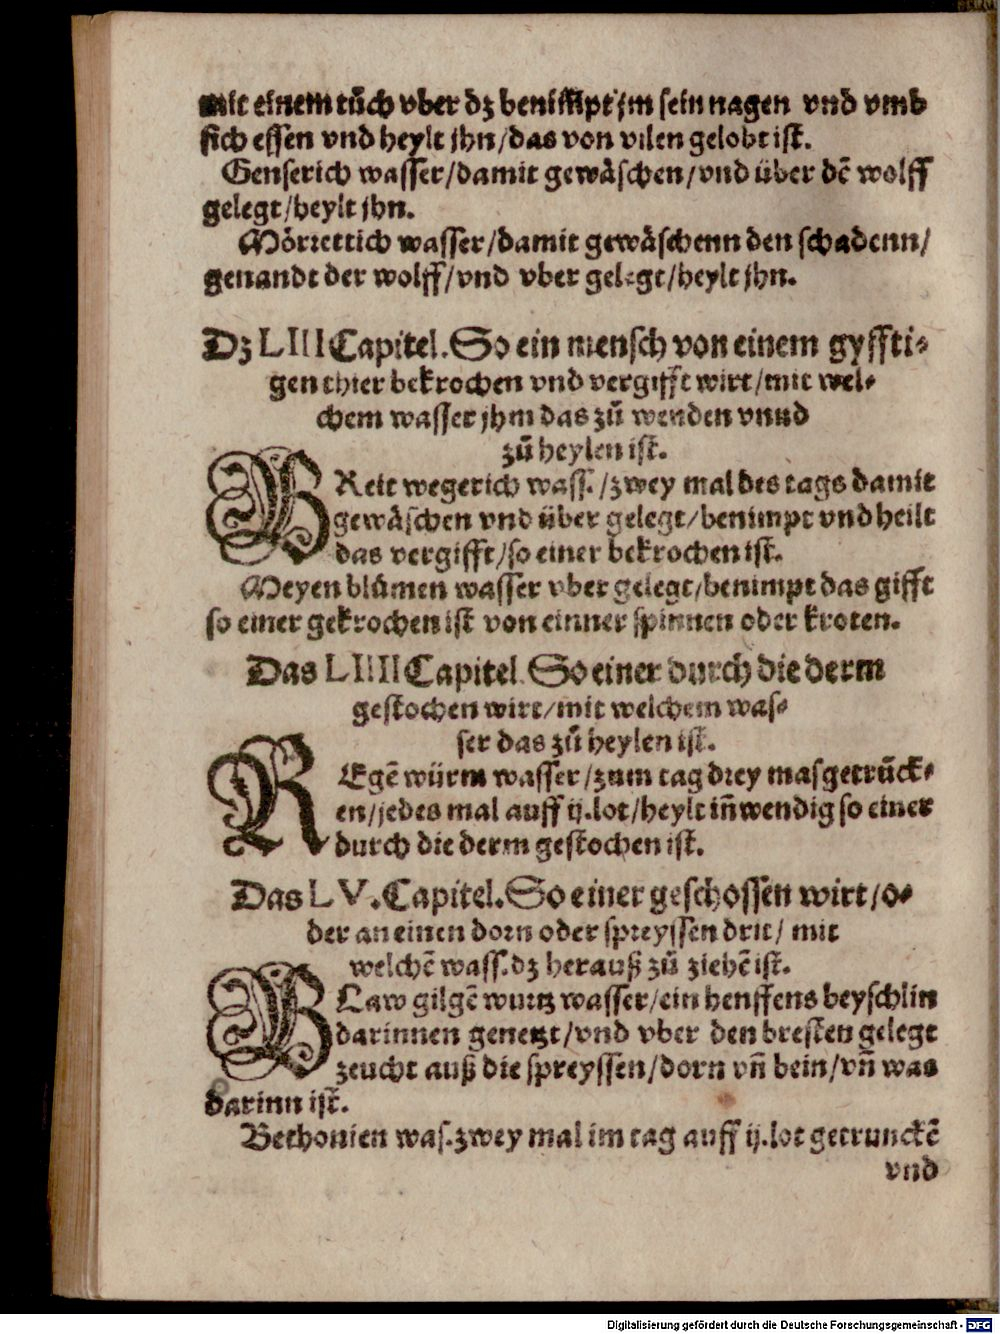 mit einem tuͦch vber dz benimpt jm sein nagen vnd vmb
sich essen vnd heylt jhn/das von vilen gelobt ist.
Genserich wasser/damit gewaͤschen/vnd über dē wolff
gelegt/heylt jhn.
Moͤrrettich wasser/damit gewaͤschenn den schadenn/
genandt der wolff/vnd vber gelegt/heylt jhn.
Dz LIII Capitel. So ein mensch von einem gyffti⸗
gen thier bekrochen vnd vergifft wirt/mit wel⸗
chem wasser jhm das zuͦ wenden vnnd
zuͦ heylen ist.
BReit wegerich wass./zwey mal des tags damit
gewaͤschen vnd über gelegt/benimpt vnd heilt
das vergifft/so einer bekrochen ist.
Meyen bluͦmen wasser vber gelegt/benimpt das gifft
so einer gekrochen ist von einner spinnen oder kroten.
Das LIIII Capitel. So einer durch die derm
gestochen wirt/mit welchem was⸗
ser das zuͦ heylen ist.
REgē würm wasser/zum tag drey mas getruͦck⸗
en/jedes mal auff ij.lot/heylt iñwendig so einer
durch die derm gestochen ist.
Das LV. Capitel. So einer geschossen wirt/o⸗
der an einen dorn oder spreyssen drit/ mit
welchē wass. dz herauß zuͦ ziehē ist.
BLaw gilgē wurtz wasser/ein henffens beyschlin
darinnen genetzt/vnd vber den bresten gelegt
zeucht auß die spreyssen/dorn vñ bein/vñ was
darinn ist.
Bethonien was. zwey mal im tag auff ij.lot getrunckē
vnd
Digitalisierung gefördert durch die Deutsche Forschungsgemeinschaft - DFG